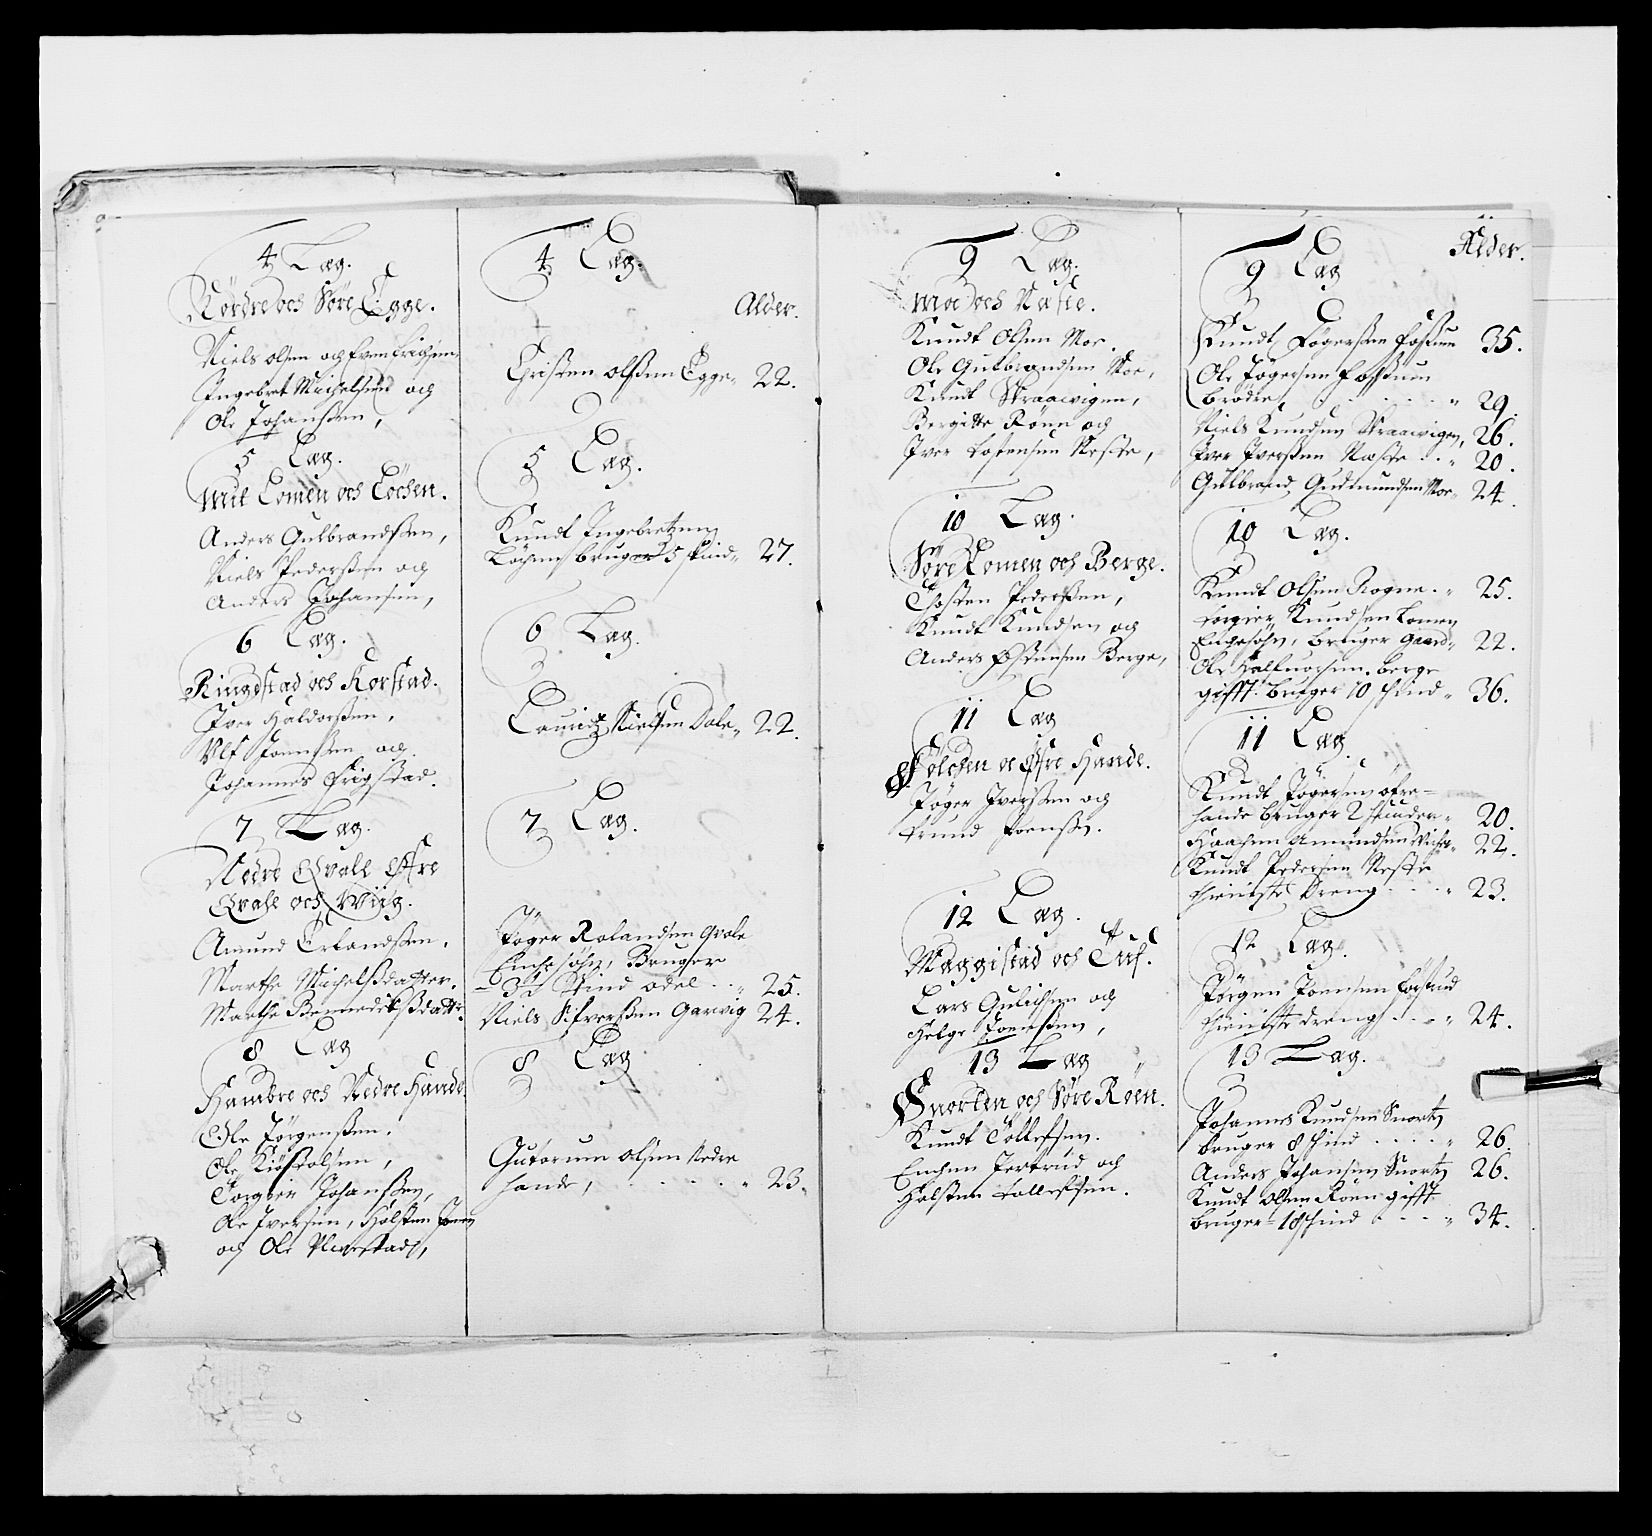 4 Lag.
Nördre och Söre Egge.
Niels olsen og Even Erichsen
Ingebret Michelsen og
Ole Johansen,
5 Lag.
Mil Lomen och Löchen.
Anders Gulbrandsen,
Niels Pedersen og
Anders Johansen,
6 Lag.
Ringstad och Korstad.
Iver Haldorsen,
Ulf Joensen og
Johannes Frigstad.
7 Lag.
Nedre Qvale Øfre
Qvale och Wiig.
Amund Erlandsen.
Marthe Michelsdatter.
Marthe Bennedictsdatter.
8 Lag
Hambre och Nedre Hande.
Ole Jörgensen.
Ole Kiöstolsen,
Torgier Johansen,
Ole Iversen, Holsten Joensen
og Ole
4 Lag.
Alder.
Christen olsen Egge 22.
5 Lag.
Knudt Ingebretsen
Löchens bruger 5 skind 27.
6 Lag.
Lauritz Nielsen Dale 22.
7 Lag.
Töger Rolandsen Qvale
Enchesöhn, Bruger
skind odel .. 25.
Niels Sifversen Garvig 24.
8 Lag
Gutorum olsen Nedre
hande, . . . . . . 23.
9 Lag.
Moe och Næste.
Knudt Olsen Moe.
Ole Gulbrandsen Moe,
Knudt Straavigen,
Bergitte Röen og
Iver Iversen Neste,
10 Lag.
Söre Lomen och Berge.
Thosten Pedersen,
Knudt Knudsen og
Anders Østensen Berge,
11 Lag
Fölchen oc Øfre Hande.
Töger Iversen og
Trund Joensen.
12 Lag.
Maggistad och Tuf.
Lars Gulichsen og
Helge Joensen,
13 Lag
Snorten och Söre Röen.
Knudt Tollefsen.
Enchen Jertrud og
Holsten Tollefsen.
Alder.
9 Lag
Knudt Tögersen fossum 35.
Ole Tögersen fossum
brödre . . . . . 29.
Niels Knudsen Straavigen, 26.
Iver Iversen Næste .. 20.
Gulbrand Gudmundsen Moe 24.
10 Lag.
Knudt Olsen Rogne . 25.
Torgier Knudsen Lomen
Enchesöhn, bruger gaard 22.
Ole Halfvorsen Berge
gifft. bruger 10 skind 36.
11 Lag.
Knudt Tögersen öfre
hande bruger 2 hunder 20.
Haagen Amundsen 22.
Knudt Pedersen Neste
thieniste Dreng . . . 23.
12 Lag.
Jörgen Joensen
thieniste dreng . . . 24.
13 Lag.
Johannes Knudsen Snortz
bruger 8 skind . . . . 26.
Anders Johansen Snortz 26.
Knudt Olsen Röen gifft
bruger 18 skind . . . 34.